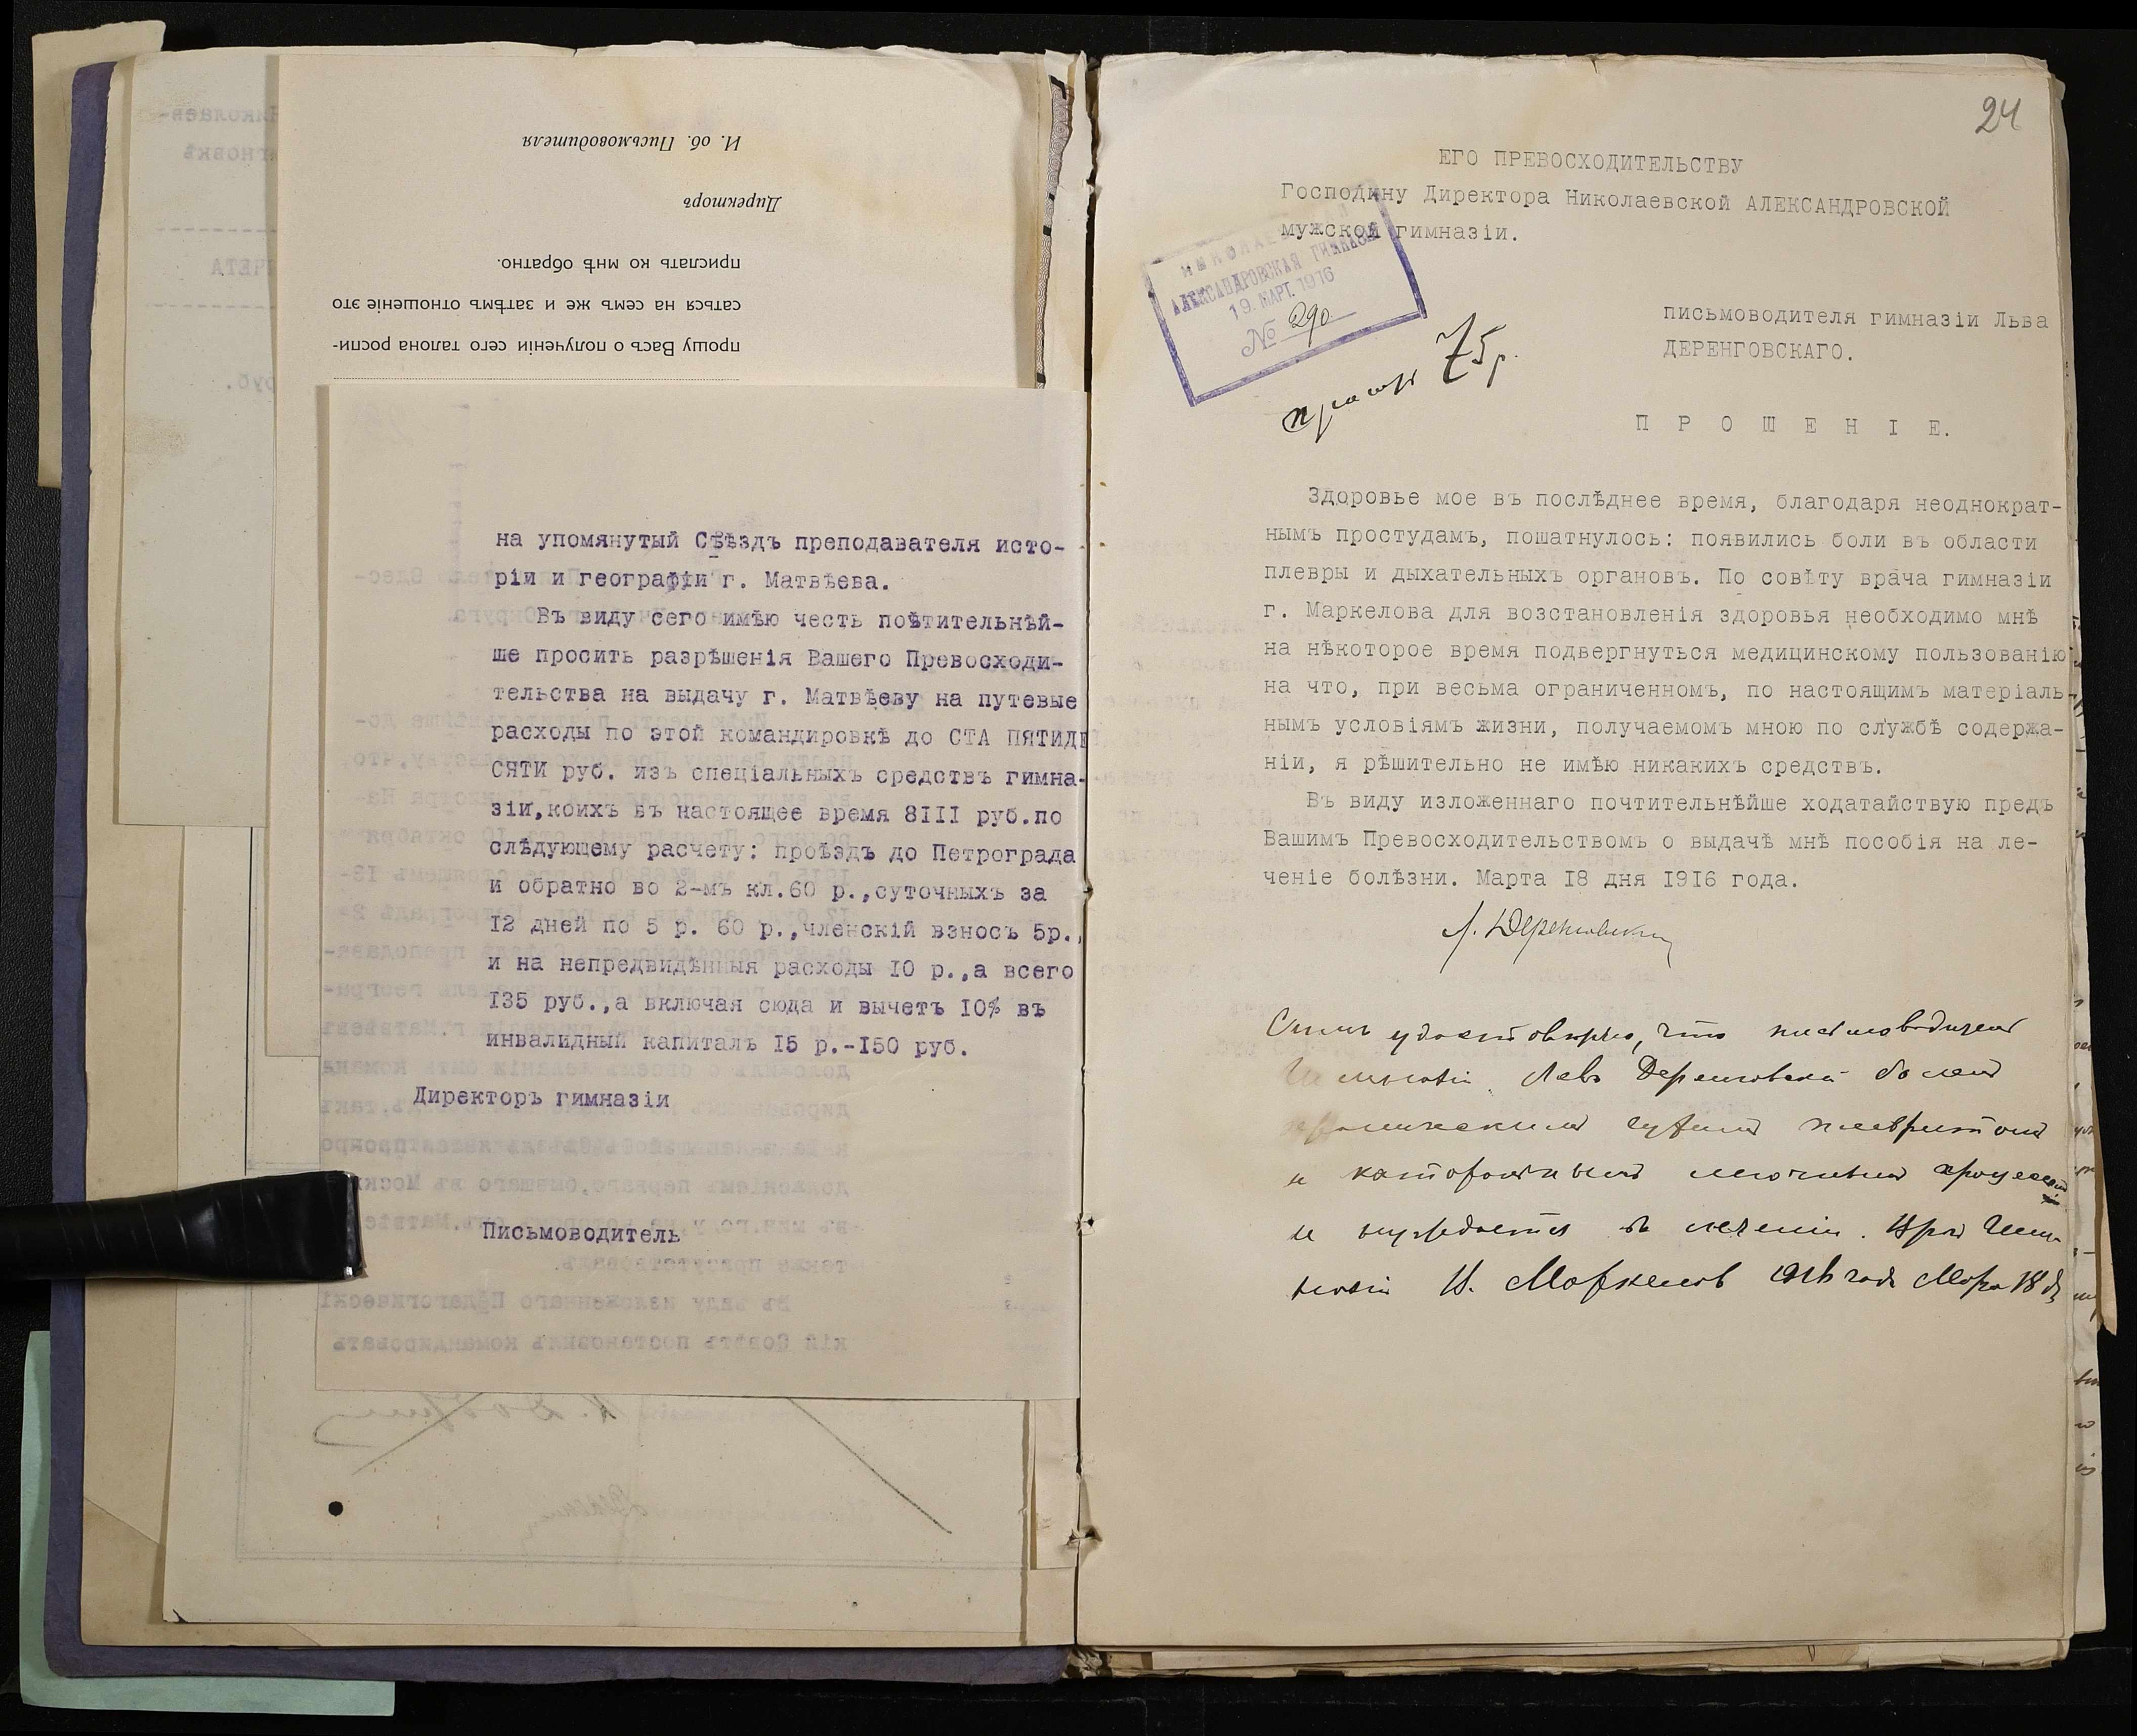 И. об. Письмоводителя
Директоръ
прислать ко мнѣ обратно.
саться на семъ же и затѣмъ отношеніе это
прошу Васъ о полученіи сего талона роспи-
на упомянутый Съѣздъ преподавателя исто-
ріи и географіи г. Матвѣева.
Въ виду сего имѣю честь почтительнѣй-
ше просить разрѣшенія Вашего Превосходи-
тельства на выдачу г. Матвѣеву на путевые
расходы по этой командировкѣ до СТА ПЯТИДЕ
СЯТИ руб. изъ спеціальныхъ средствъ гимна-
зіи,коихъ въ настоящее время 8III руб.по
слѣдующему расчету: проѣздъ до Петрограда
и обратно во 2-мъ кл.60 р.,суточныхъ за
I2 дней по 5 р. 60 р.,членскій взносъ 5р.,
и на непредвидѣнныя расходы I0 р.,а всего
I35 руб.,а включая сюда и вычетъ I0% въ
инвалидный капиталъ I5 р.-I50 руб.
Директоръ гимназіи
Письмоводитель
24
ЕГО ПРЕВОСХОДИТЕЛЬСТВУ
Господину Директора Николаевской АЛЕКСАНДРОВСКОЙ
мужской гимназіи.
НИКОЛАЕВСКАЯ
АЛЕКСАНДРОВСКАЯ ГИМНАЗІЯ
19. МАРТ. 1916
№ 290
75 р.
письмоводителя гимназіи Льва
ДЕРЕНГОВСКАГО.
П Р О Ш Е Н І Е.
Здоровье мое въ послѣднее время, благодаря неоднократ-
нымъ простудамъ, пошатнулось: появились боли въ области
плевры и дыхательныхъ органовъ. По совѣту врача гимназіи
г. Маркелова для возстановленія здоровья необходимо мнѣ
на нѣкоторое время подвергнуться медицинскому пользованію
на что, при весьма ограниченномъ, по настоящимъ матеріаль-
нымъ условіямъ жизни, получаемомъ мною по службѣ содержа-
ніи, я рѣшительно не имѣю никакихъ средствъ.
Въ виду изложеннаго почтительнѣйше ходатайствую предъ
Вашимъ Превосходительствомъ о выдачѣ мнѣ пособія на ле-
ченіе болѣзни. Марта I8 дня I9I6 года.
Л. Деренговскій
Симъ удостовѣряю, что письмоводитель
Гимназіи Левъ Деренговскій боленъ
хроническимъ сухимъ плевритомъ
и катаральнымъ легочнымъ процессомъ
и нуждается въ леченіи. Врач Гим-
назіи И. Маркелов 1916 года Марта 18 д.